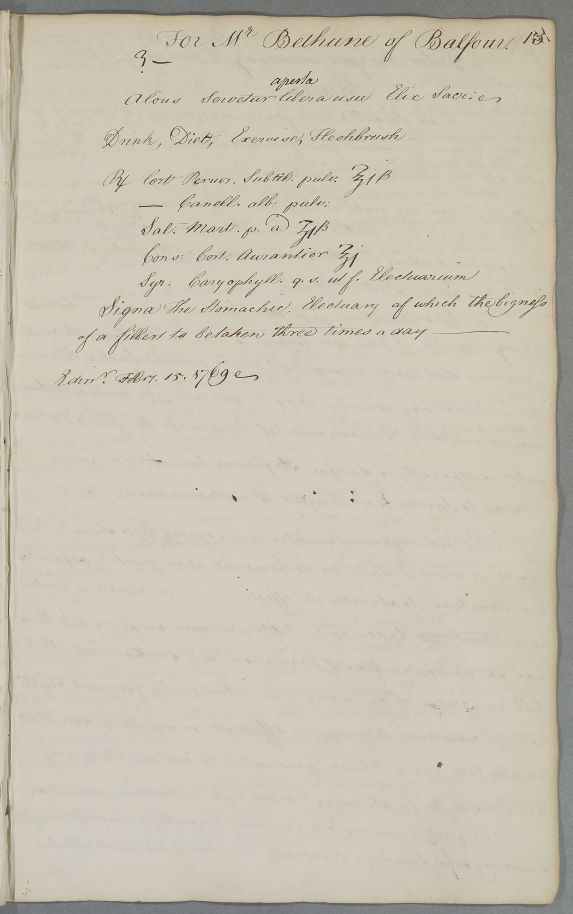 For Mr Bethune of Balfour. 13
3 —
aperta
Alvus Servetur libera usu Elix Sacri:
Drink, Diet, Exercise, Fleshbrush
℞ Cort Peruv. Subtil. pulv. ℥jß
— Canell. alb. pulv:
Sal. Mart. p. a ʒjß
Cons: Cort. Aurantior ℥j
Syr: Caryophyll. q. s. ut f. Electuarium
Signa The Stomachic Electuary of which the bigness
of a filbert to be taken three times a day
Edinr. Febry. 15. 1769